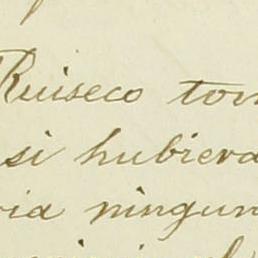 Ruiseco tom
si hubiera
ia ningun